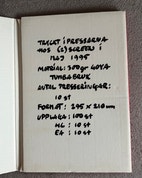 TRYCKT I PRESSARNA
HOS (2) SCREEN I
MAJ 1995
MATRIAL: 300gr GOYA
TUMBABRUK
ANTAL PRESSERINGAR:
10 st
FORMAT: 295 x 210 mm
UPPLAGA: 100 st
HC: 10 st
EA: 10 st